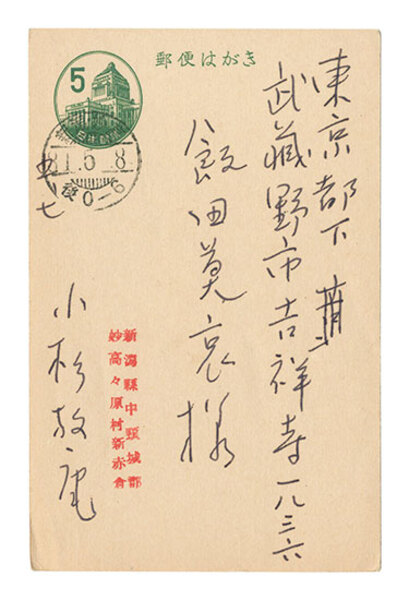 郵便はがき
5
31.5.8
東京都下
武藏野市吉祥寺一八三六
飯田莫哀様
五七
新潟縣中頸城郡
妙高々原村新赤倉
小杉放庵